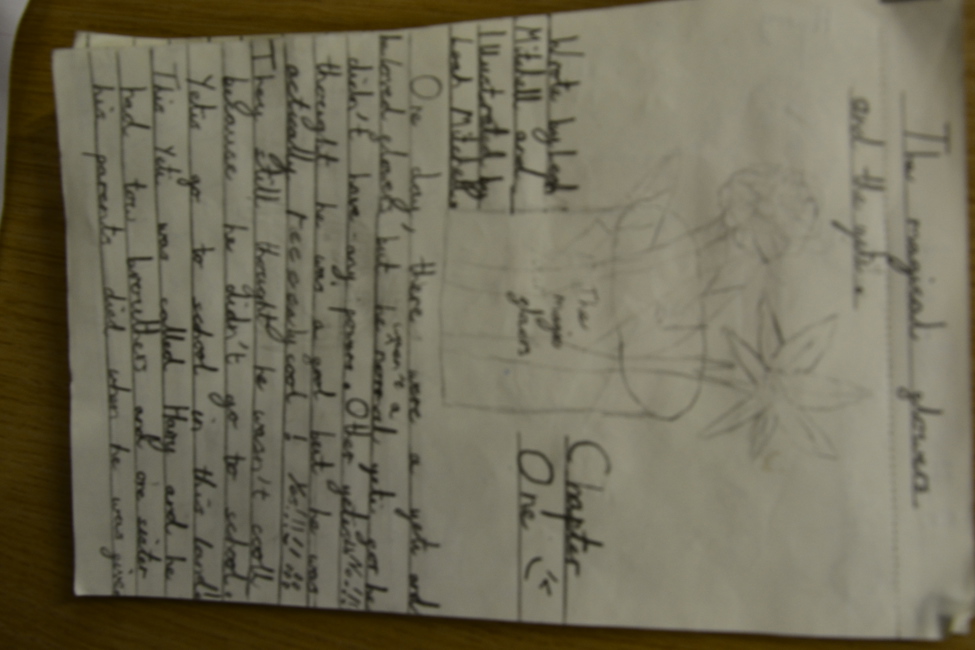 The magical flower
and the yetie
Wrote by Leah
Mitchell and
Illustrated by
Leah Mitchell.
The
magic
Chapter
One
One day, there were a yetie and
but he wasn't a normal yetie for he
didn't have any power. Other yeties
thought he was a god but he was
actually cool!
They still thought he wasn't cooll
because he didn't go to school.
Yetis go to school in this land!
This yeti was called Harry and he
had tow brouthers and one sister
his parents did when he was given